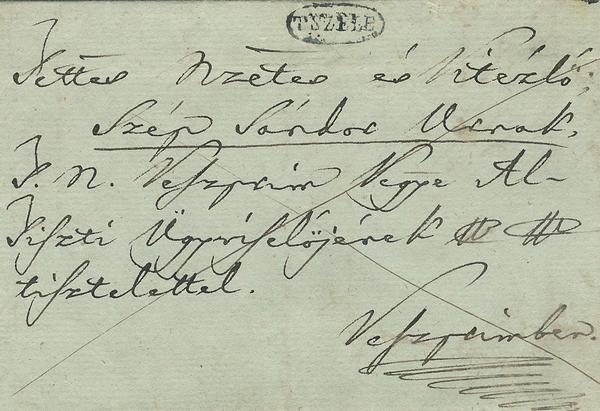 TSZELE
Tettes Nzetes és Vitézlő
Szép Sándor Urnak,
T. N. Veszprim Megye Al-
Tiszti Ügyviselőjének
tisztelettel.
Veszprimben.